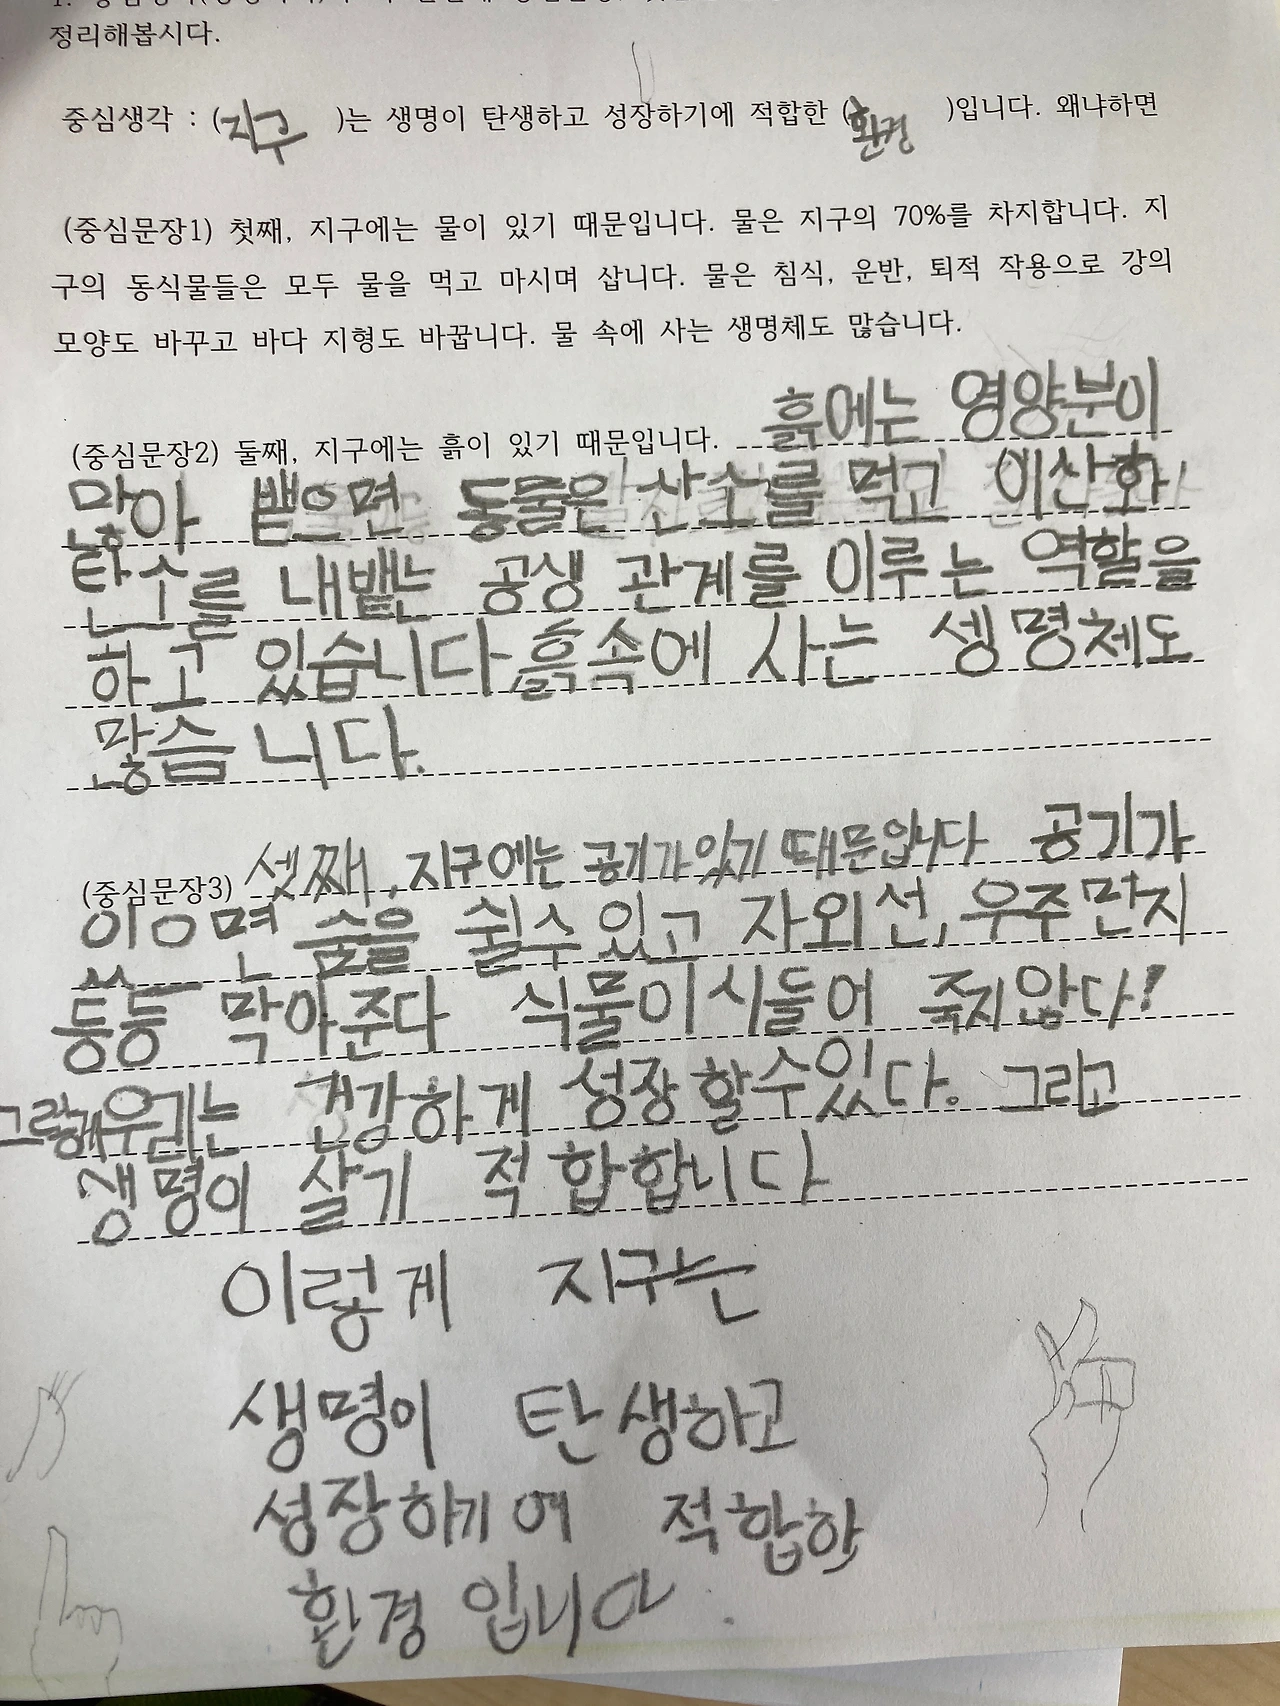 정리해봅시다.
중심생각 : (지구 )는 생명이 탄생하고 성장하기에 적합한 (환경 )입니다. 왜냐하면
(중심문장1) 첫째, 지구에는 물이 있기 때문입니다. 물은 지구의 70%를 차지합니다. 지
구의 동식물들은 모두 물을 먹고 마시며 삽니다. 물은 침식, 운반, 퇴적 작용으로 강의
모양도 바꾸고 바다 지형도 바꿉니다. 물 속에 사는 생명체도 많습니다.
(중심문장2) 둘째, 지구에는 흙이 있기 때문입니다. 흙에는 영양분이
많아 뱉으면 동물은 산소를 먹고 이산화
탄소를 내뱉는 공생 관계를 이루는 역할을
하고 있습니다 흙속에 사는 셍명체도
많습니다.
(중심문장3) 셋째, 지구에는 공기가 있기 때문입니다 공기가
있으면 숨을 쉴수있고 자외선, 우주먼지
등등 막아준다 식물이 시들어 죽지않다!
그럼해 우리는 건강하게 성장할수있다. 그리고
생명이 살기 적합합니다
이렇게 지구는
생명이 탄생하고
성장하기에 적합한
환경입니다.